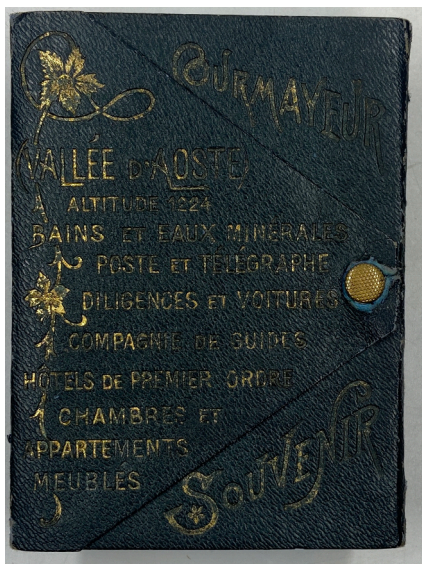 COURMAYEUR
(VALLÉE D'AOSTE)
ALTITUDE 1224
BAINS ET EAUX MINÉRALES
POSTE ET TÉLÉGRAPHE
DILIGENCES ET VOITURES
COMPAGNIE DE GUIDES
HÔTELS DE PREMIER ORDRE
CHAMBRES ET
APPARTEMENTS
MEUBLÉS
SOUVENIR